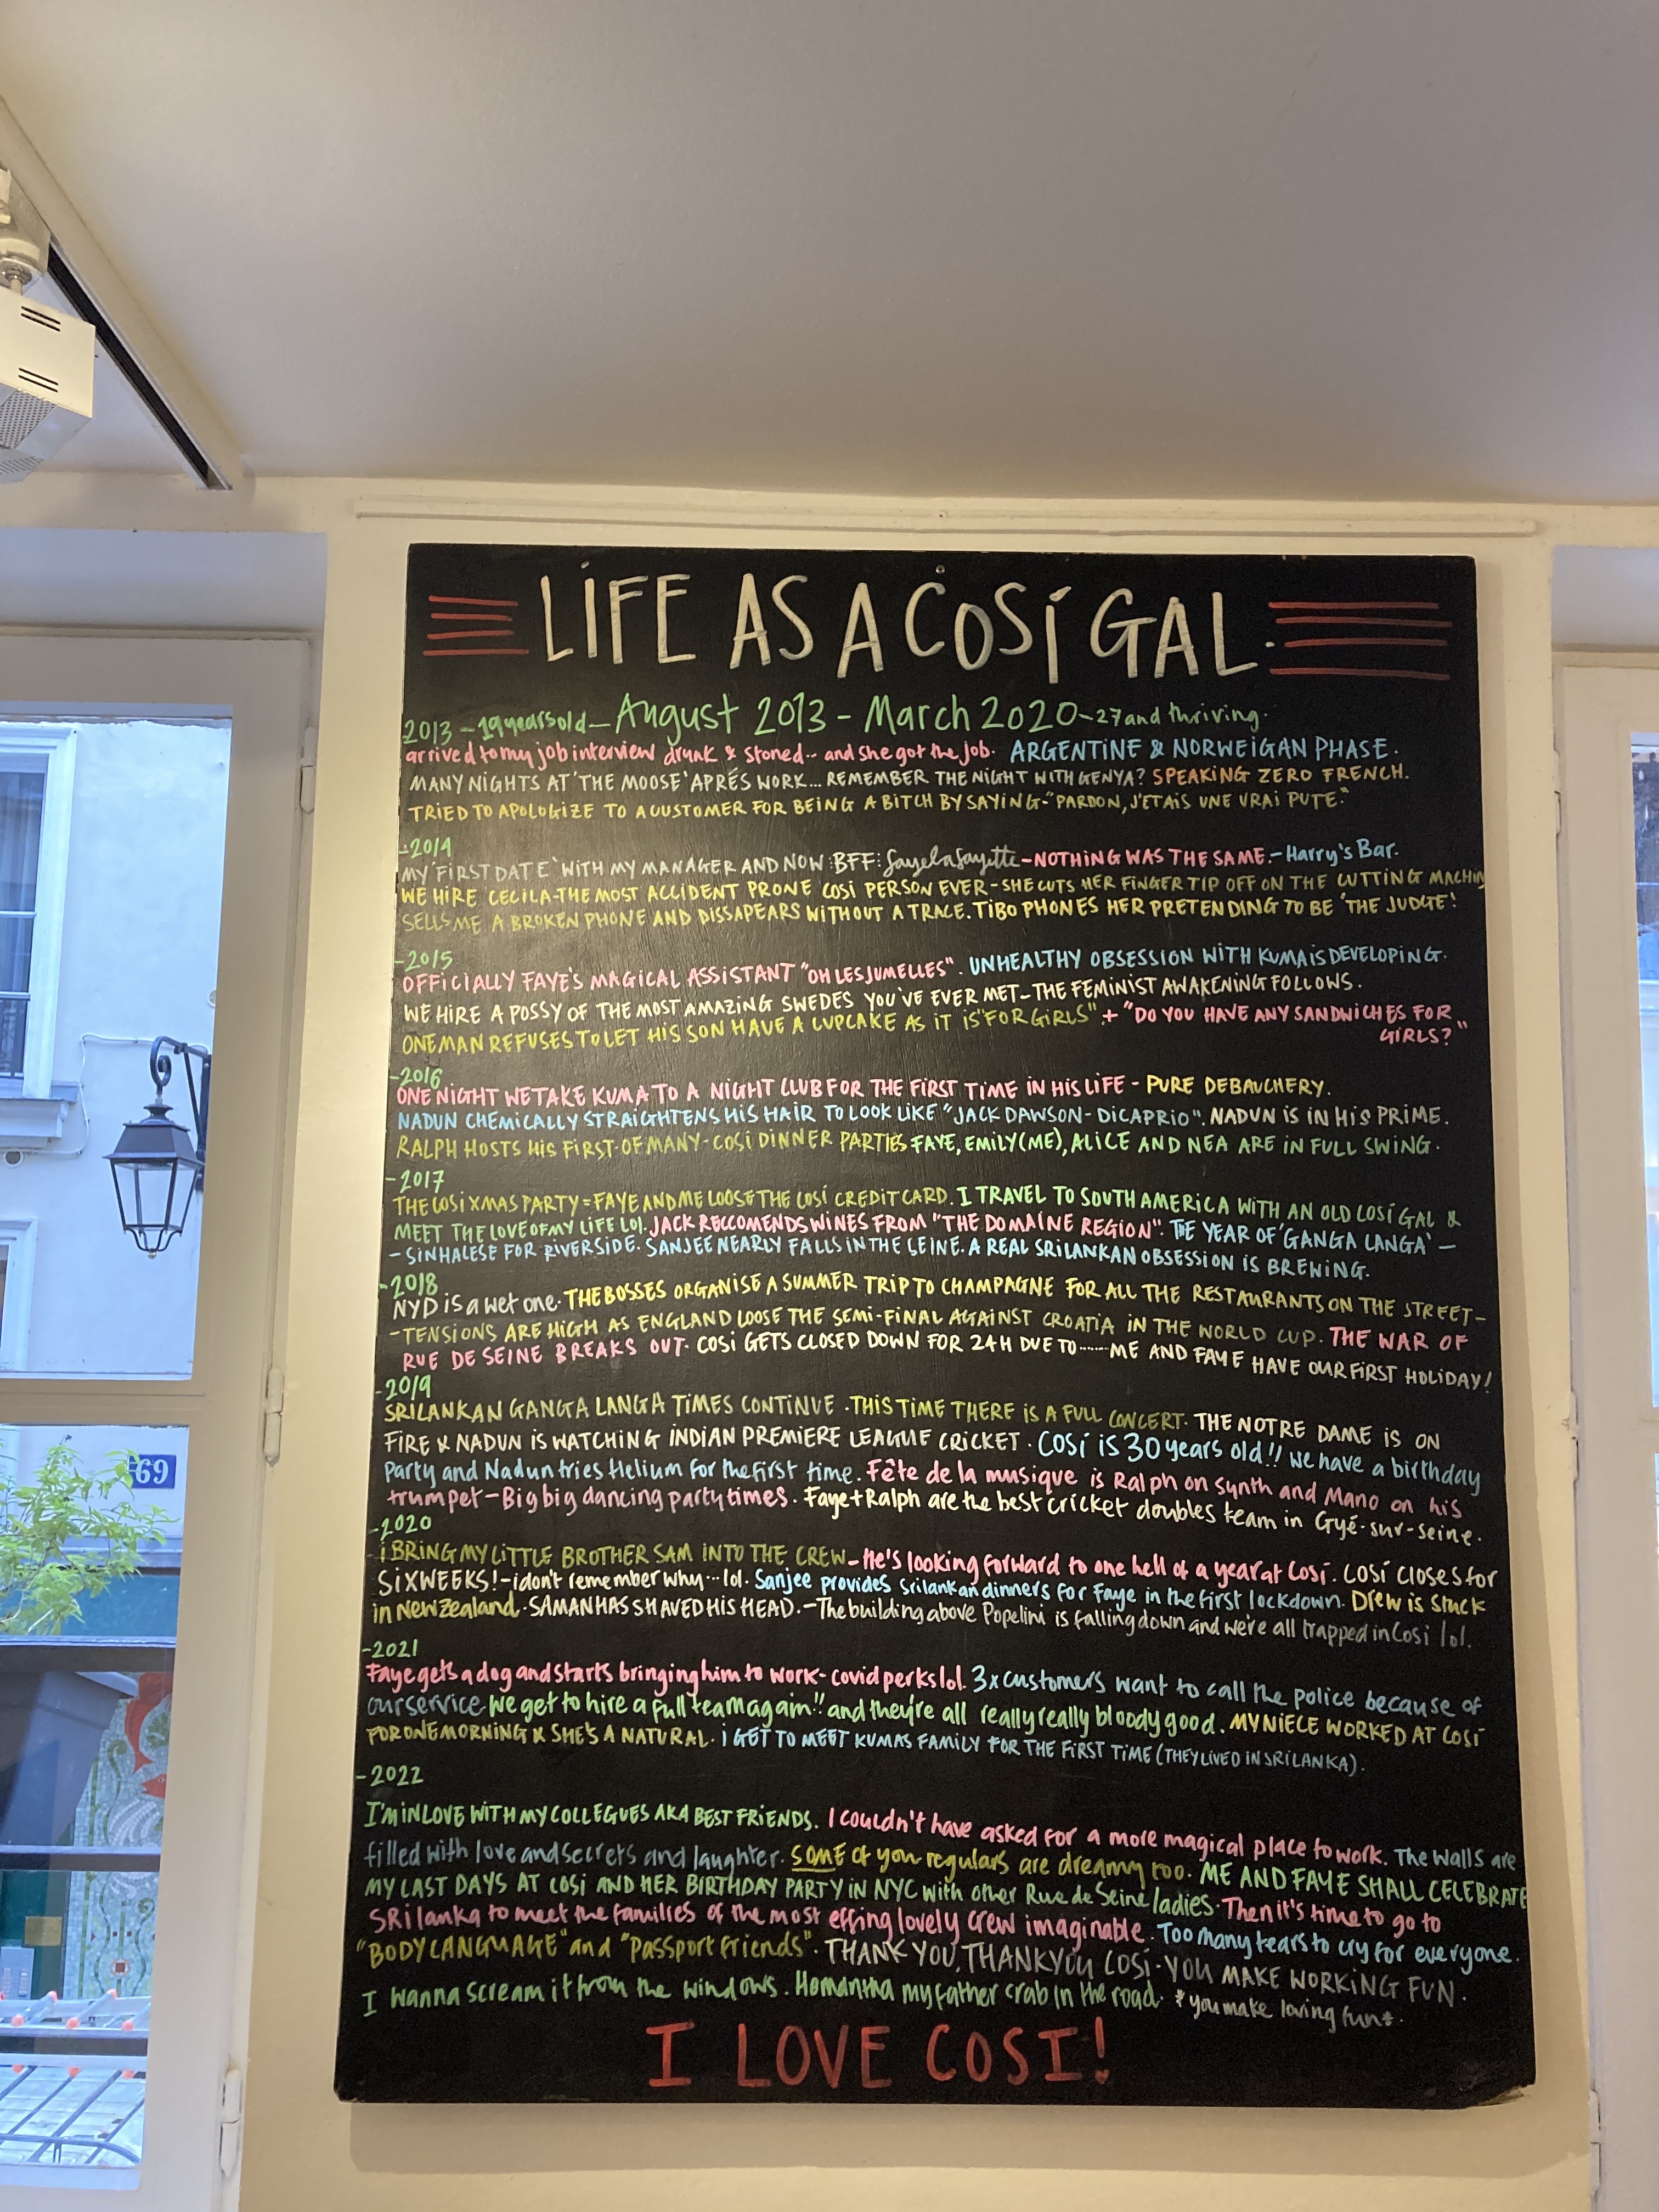 LIFE AS A COSÍ GAL.
2013 - 19 years old - August 2013 - March 2020 - 27 and thriving.
arrived to my job interview drunk & stoned... and she got the job. ARGENTINE & NORWEIGAN PHASE.
MANY NIGHTS AT 'THE MOOSE' APRÉS WORK... REMEMBER THE NIGHT WITH GENYA? SPEAKING ZERO FRENCH.
TRIED TO APOLOGIZE TO A CUSTOMER FOR BEING A BITCH BY SAYING-"PARDON, J'ETAIS UNE VRAI PUTE."
-2014
MY 'FIRST DATE' WITH MY MANAGER AND NOW BFF: fayelafayette - NOTHING WAS THE SAME. - Harry's Bar.
WE HIRE CECILA-THE MOST ACCIDENT PRONE COSÍ PERSON EVER - SHE CUTS HER FINGER TIP OFF ON THE CUTTING MACHIN
SELLS ME A BROKEN PHONE AND DISSAPEARS WITHOUT A TRACE. TIBO PHONES HER PRETENDING TO BE 'THE JUDGE'!
-2015
OFFICIALLY FAYE'S MAGICAL ASSISTANT "OH LES JUMELLES". UNHEALTHY OBSESSION WITH KUMA IS DEVELOPING.
WE HIRE A POSSY OF THE MOST AMAZING SWEDES YOU'VE EVER MET - THE FEMINIST AWAKENING FOLLOWS.
ONE MAN REFUSES TO LET HIS SON HAVE A CUPCAKE AS IT IS "FOR GIRLS". + "DO YOU HAVE ANY SANDWICHES FOR
GIRLS?"
-2016
ONE NIGHT WE TAKE KUMA TO A NIGHT CLUB FOR THE FIRST TIME IN HIS LIFE - PURE DEBAUCHERY.
NADUN CHEMICALLY STRAIGHTENS HIS HAIR TO LOOK LIKE "JACK DAWSON - DICAPRIO". NADUN IS IN HIS PRIME.
RALPH HOSTS HIS FIRST-OF MANY-COSÍ DINNER PARTIES FAYE, EMILY (ME), ALICE AND NEA ARE IN FULL SWING.
-2017
THE COSI XMAS PARTY = FAYE AND ME LOOSE THE COSÍ CREDIT CARD. I TRAVEL TO SOUTH AMERICA WITH AN OLD COSÍ GAL &
MEET THE LOVE OF MY LIFE LOL. JACK RECCOMENDS WINES FROM "THE DOMAINE REGION". THE YEAR OF 'GANGA LANGA' -
- SINHALESE FOR RIVERSIDE. SANJEE NEARLY FALLS IN THE LEINE. A REAL SRILANKAN OBSESSION IS BREWING.
-2018
NYD is a wet one. THE BOSSES ORGANISE A SUMMER TRIP TO CHAMPAGNE FOR ALL THE RESTAURANTS ON THE STREET-
-TENSIONS ARE HIGH AS ENGLAND LOOSE THE SEMI-FINAL AGAINST CROATIA IN THE WORLD CUP. THE WAR OF
RUE DE SEINE BREAKS OUT. COSI GETS CLOSED DOWN FOR 24H DUE TO...... ME AND FAYE HAVE OUR FIRST HOLIDAY!
-2019
SRILANKAN GANGA LANGA TIMES CONTINUE. THIS TIME THERE IS A FULL CONCERT. THE NOTRE DAME IS ON
FIRE & NADUN IS WATCHING INDIAN PREMIERE LEAGUE CRICKET. COSÍ iS 30 years old!! We have a birthday
party and Nadun tries Helium for the first time. Fête de la musique is Ralph on synth and Mano on his
trumpet - Big big dancing party times. Faye + Ralph are the best cricket doubles team in Gyé-sur-seine.
-2020
I BRING MY LITTLE BROTHER SAM INTO THE CREW - He's looking forward to one hell of a year at Cosí. COSÍ CLOSES for
SIX WEEKS! - i don't remember why... lol. Sanjee provides srilankan dinners for Faye in the first lockdown. Drew is stuck
in New Zealand. SAMAN HAS SHAVED HIS HEAD. - The building above Popelini is falling down and we're all trapped in Cosi lol.
-2021
Faye gets a dog and starts bringing him to work - covid perks lol. 3x customers want to call the police because of
our service. We get to hire a full team again!! and they're all really really bloody good. MY NIECE WORKED AT COSÍ
FOR ONE MORNING & SHE'S A NATURAL. I GET TO MEET KUMAS FAMILY FOR THE FIRST TIME (THEY LIVED IN SRILANKA).
-2022
I'M IN LOVE WITH MY COLLEGUES AKA BEST FRIENDS. I couldn't have asked for a more magical place to work. The Walls are
filled with love and secrets and laughter. SOME of you regulars are dreamy too. ME AND FAYE SHALL CELEBRATE
MY LAST DAYS AT COSÍ AND HER BIRTHDAY PARTY IN NYC with other Rue de Seine ladies. Then it's time to go to
SRilanka to meet the families of the most effing lovely crew imaginable. Too many tears to cry for everyone.
"BODY LANGUAGE" and "Passport friends". THANK YOU, THANK YOU COSÍ. YOU MAKE WORKING FUN.
I wanna scream it from the windows. Hemantha my father crab in the road. *you make loving fun*.
I LOVE COSI!
69